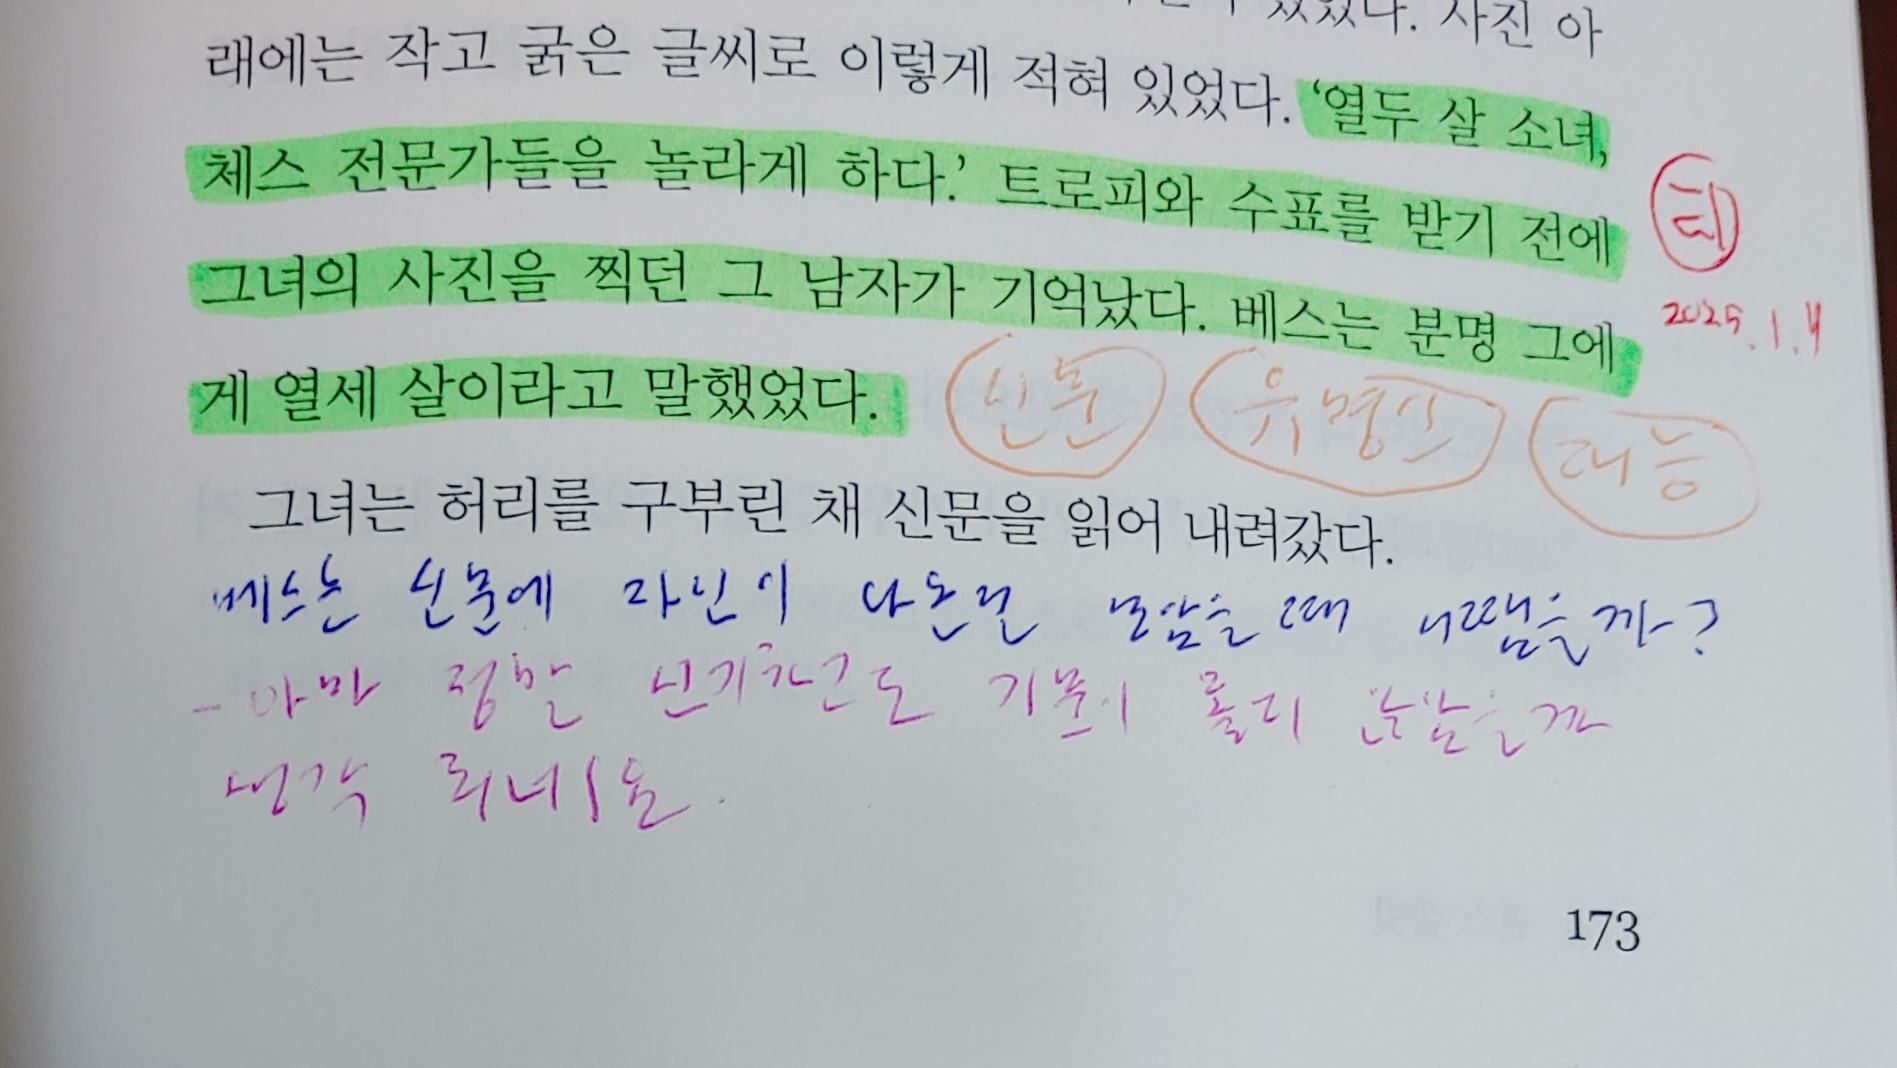 있었다. 사진 아
래에는 작고 굵은 글씨로 이렇게 적혀 있었다. ‘열두 살 소녀,
체스 전문가들을 놀라게 하다.’ 트로피와 수표를 받기 전에
그녀의 사진을 찍던 그 남자가 기억났다. 베스는 분명 그에
게 열세 살이라고 말했었다.
2025.1.4
신문 유명인 재능
그녀는 허리를 구부린 채 신문을 읽어 내려갔다.
베스는 신문에 자신이 나온 걸 보았을 때 어땠을까?
- 아마 정말 신기하고도 기분이 묘하지 않았을까
생각 되네요.
173